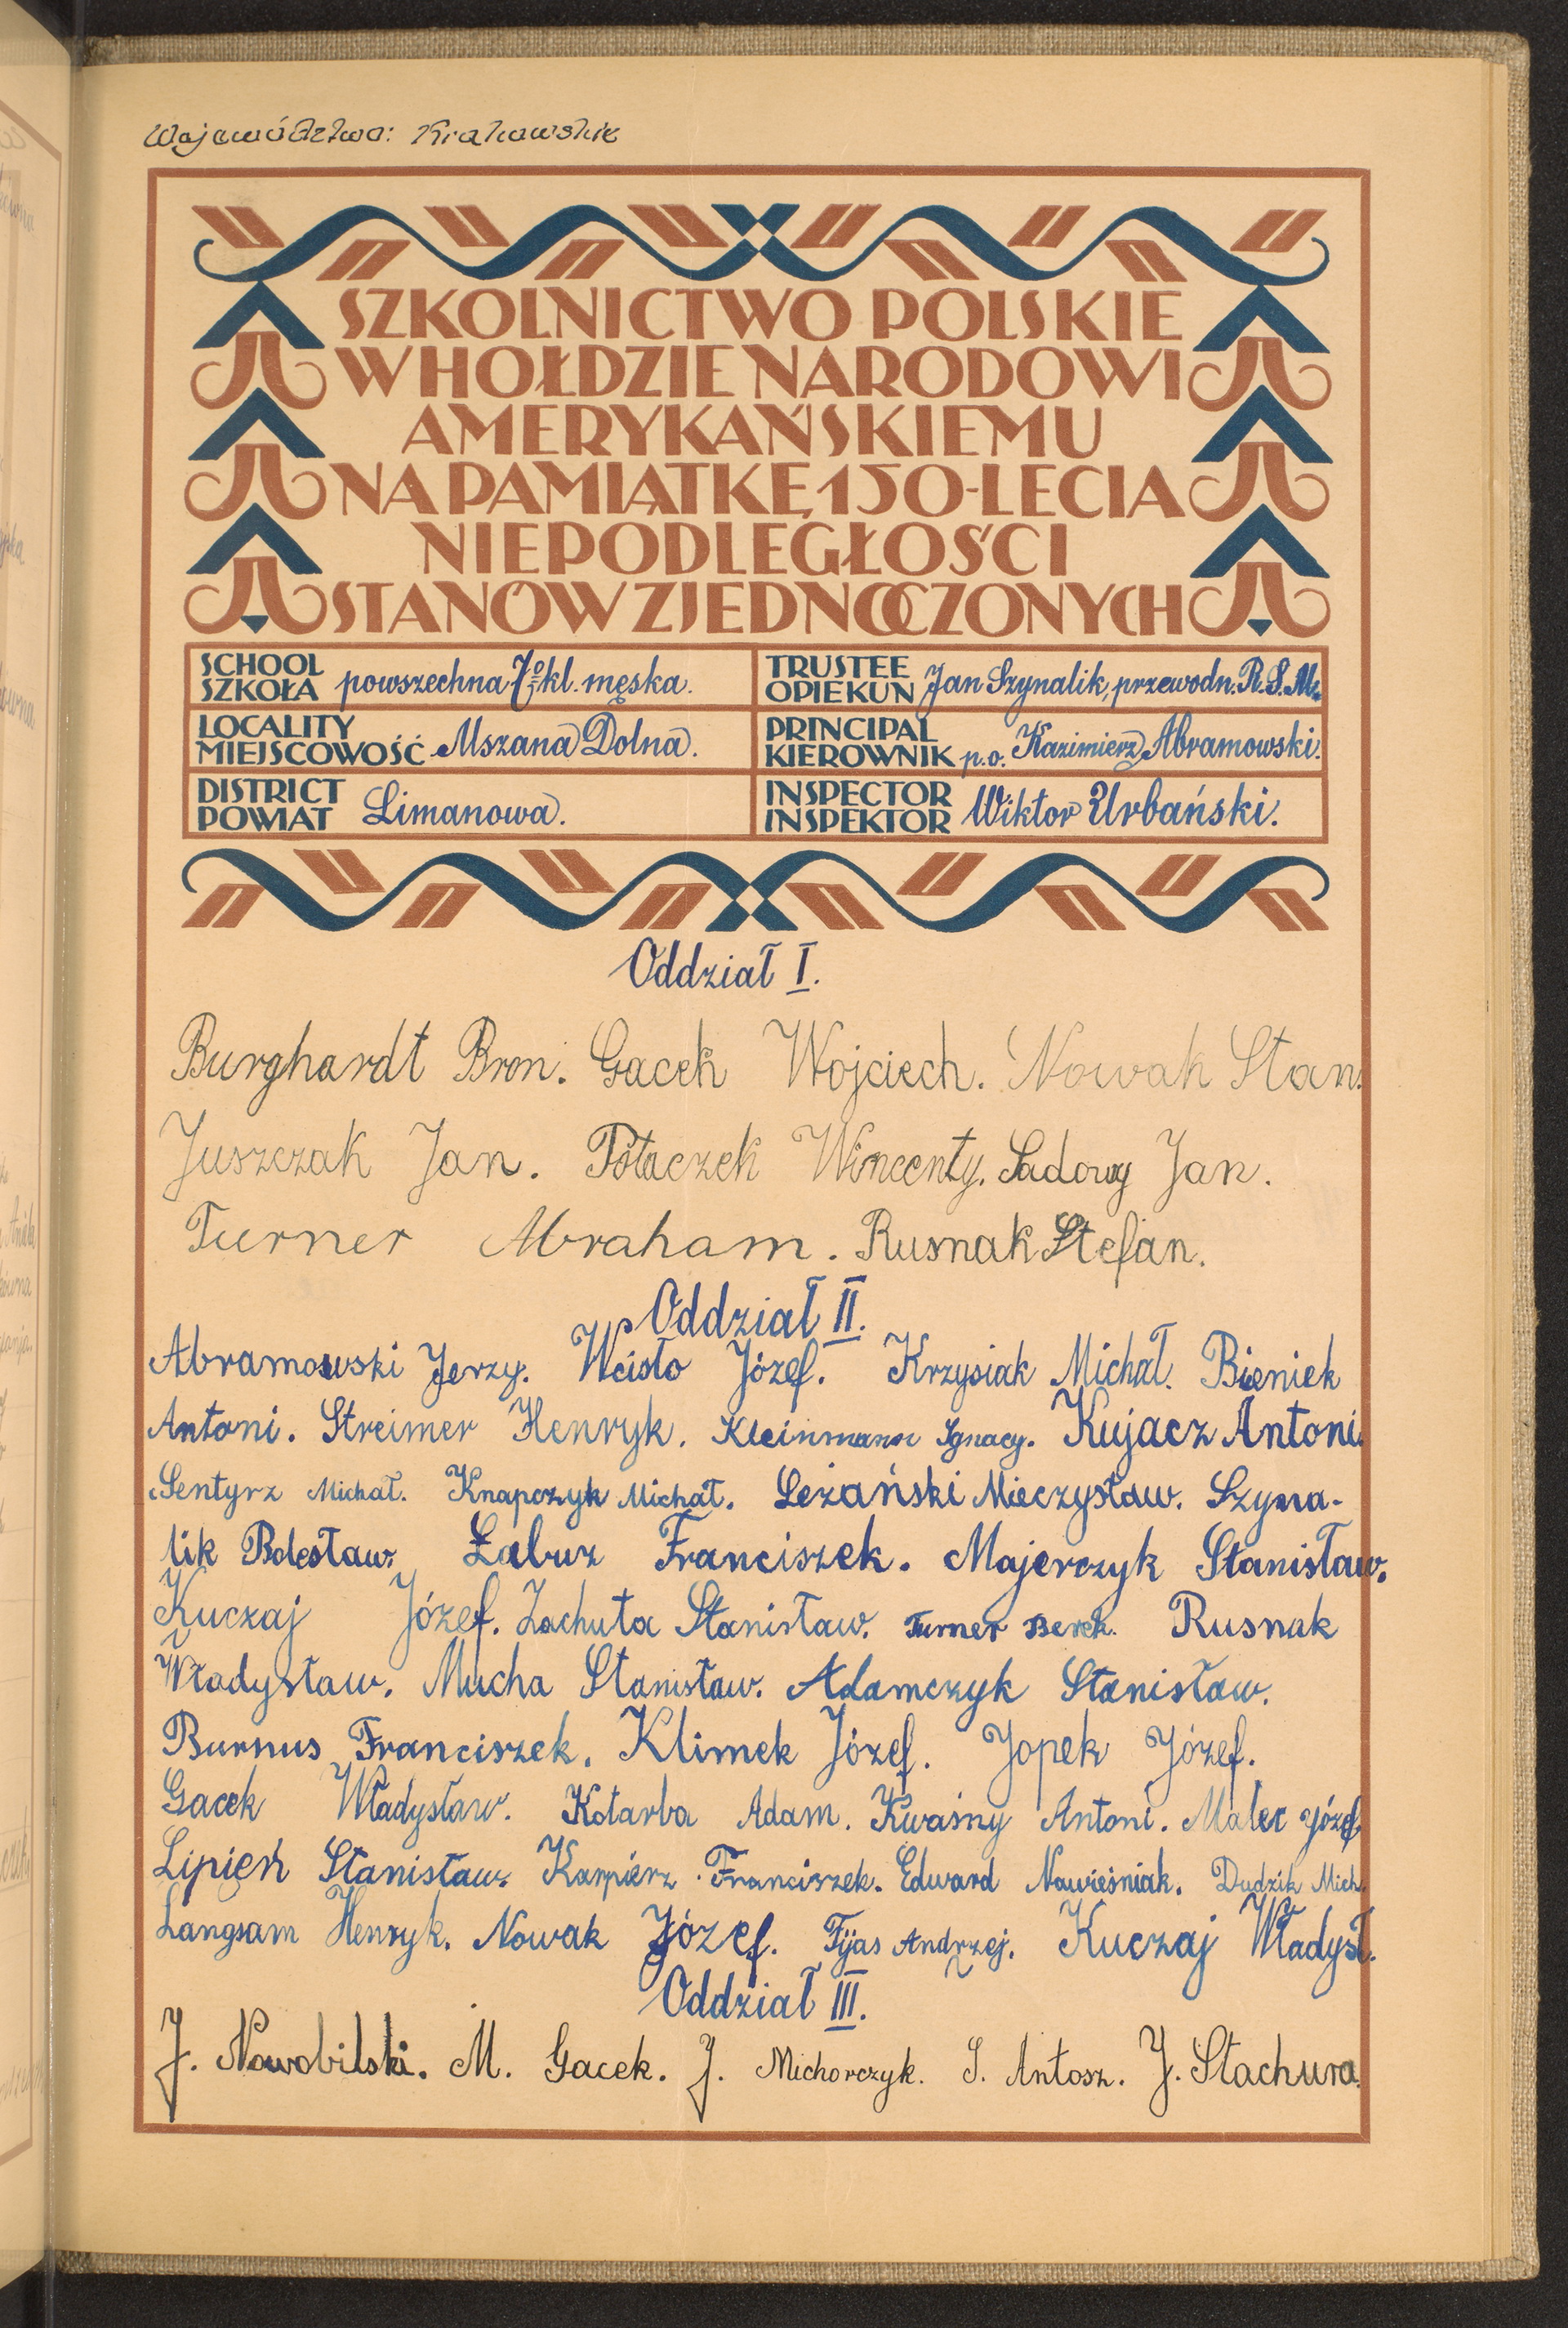 Wojewódstwo: Krakowskie
SZKOLNICTWO POLSKIE
W HOŁDZIE NARODOWI
AMERYKAŃSKIEMU
NA PAMIĄTKĘ 150-LECIA
NIEPODLEGŁOŚCI
STANÓW ZJEDNOCZONYCH
SCHOOL
SZKOŁA powszechna 7 kl. męska.
TRUSTEE
OPIEKUN Jan Szynalik, przewodn. R.S.M.
LOCALITY
MIEJSCOWOŚĆ Mszana Dolna.
PRINCIPAL
KIEROWNIK p.o. Kazimierz Abramowski.
DISTRICT
POWIAT Limanowa.
INSPECTOR
INSPEKTOR Wiktor Urbański.
Oddział I.
Burghardt Bron. Gacek Wojciech. Nowak Stan.
Juszczak Jan. Potaczek Wincenty. Sadowy Jan.
Turner Abraham. Rusnak Stefan.
Oddział II.
Abramowski Jerzy. Wcisło Józef. Krzysiak Michał. Bieniek
Antoni. Streimer Henryk. Kleinmann Ignacy. Kujacz Antoni.
Sentyrz Michał. Knapczyk Michał. Leżański Mieczysław. Szyna-
lik Bolesław. Łabuz Franciszek. Majerczyk Stanisław.
Kuczaj Józef. Zachuta Stanisław. Turner Berek. Rusnak
Władysław. Mucha Stanisław. Adamczyk Stanisław.
Burnus Franciszek. Klimek Józef. Jopek Józef.
Gacek Władysław. Kotarba Adam. Kwaśny Antoni. Malec Józef
Lipień Stanisław. Karpierz Franciszek. Edward Nawieśniak. Dudzik Mich.
Langsam Henryk. Nowak Józef. Fijas Andrzej. Kuczaj Władysł.
Oddział III.
J. Nowobilski. M. Gacek. J. Michorczyk. S. Antosz. J. Stachura.